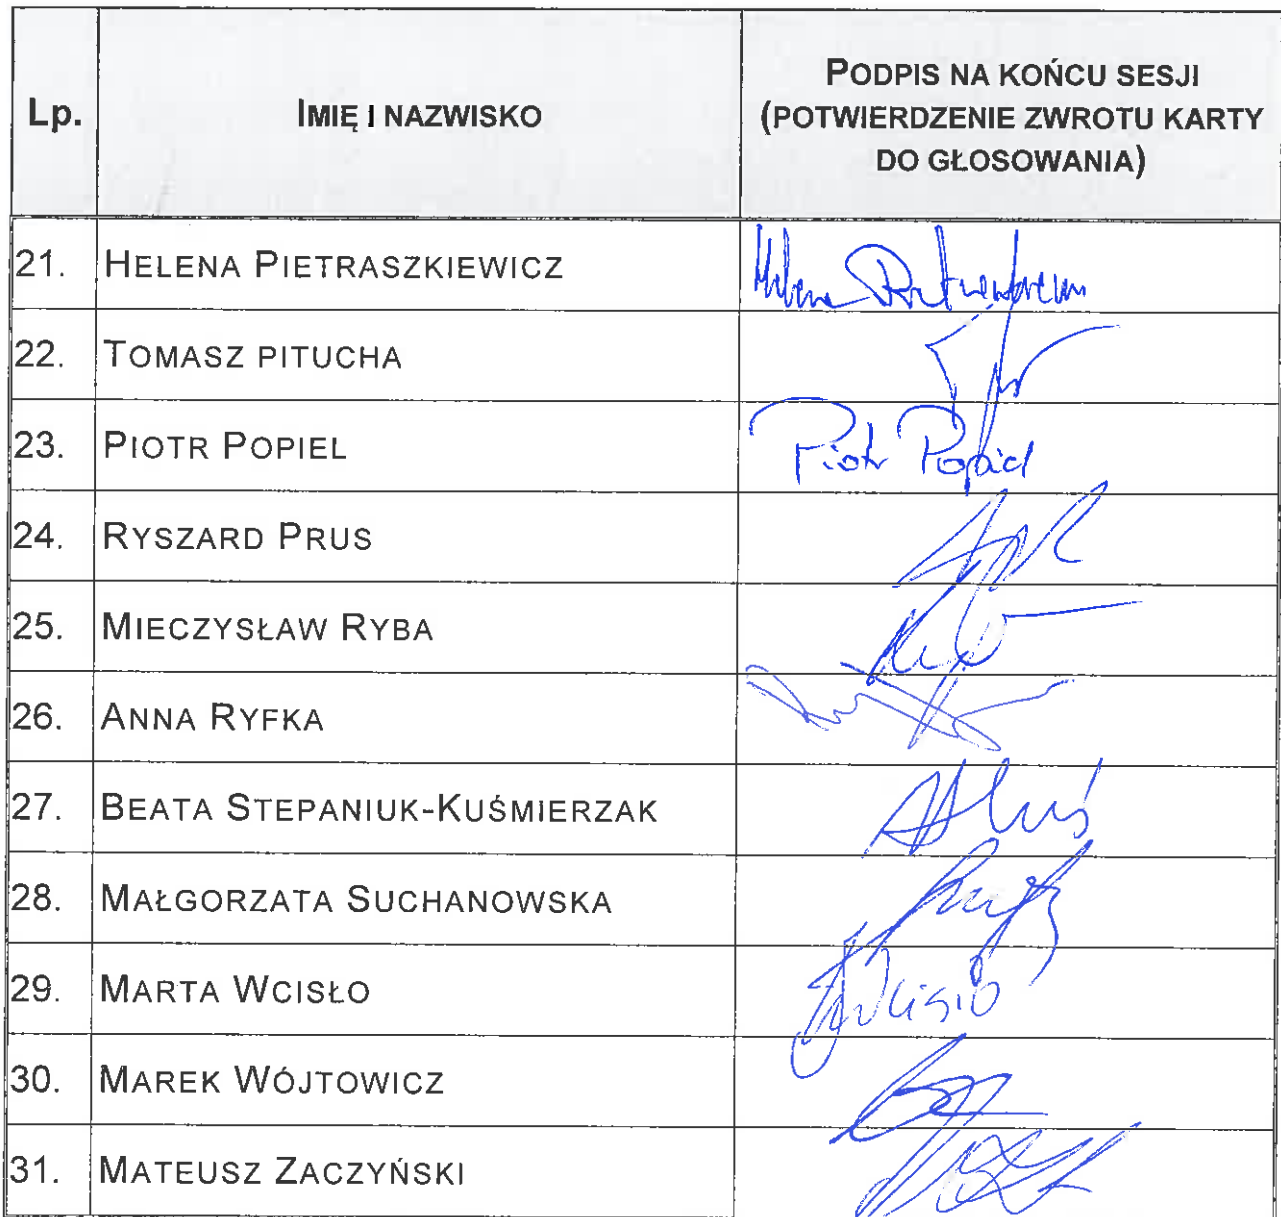 Lp.
IMIĘ I NAZWISKO
PODPIS NA KOŃCU SESJI
(POTWIERDZENIE ZWROTU KARTY
DO GŁOSOWANIA)
21. HELENA PIETRASZKIEWICZ Helena
22. TOMASZ PITUCHA
23. PIOTR POPIEL Piotr Popiel
24. RYSZARD PRUS
25. MIECZYSŁAW RYBA
26. ANNA RYFKA
27. BEATA STEPANIUK-KUŚMIERZAK
28. MAŁGORZATA SUCHANOWSKA
29. MARTA WCISŁO Wcisło
30. MAREK WÓJTOWICZ
31. MATEUSZ ZACZYŃSKI